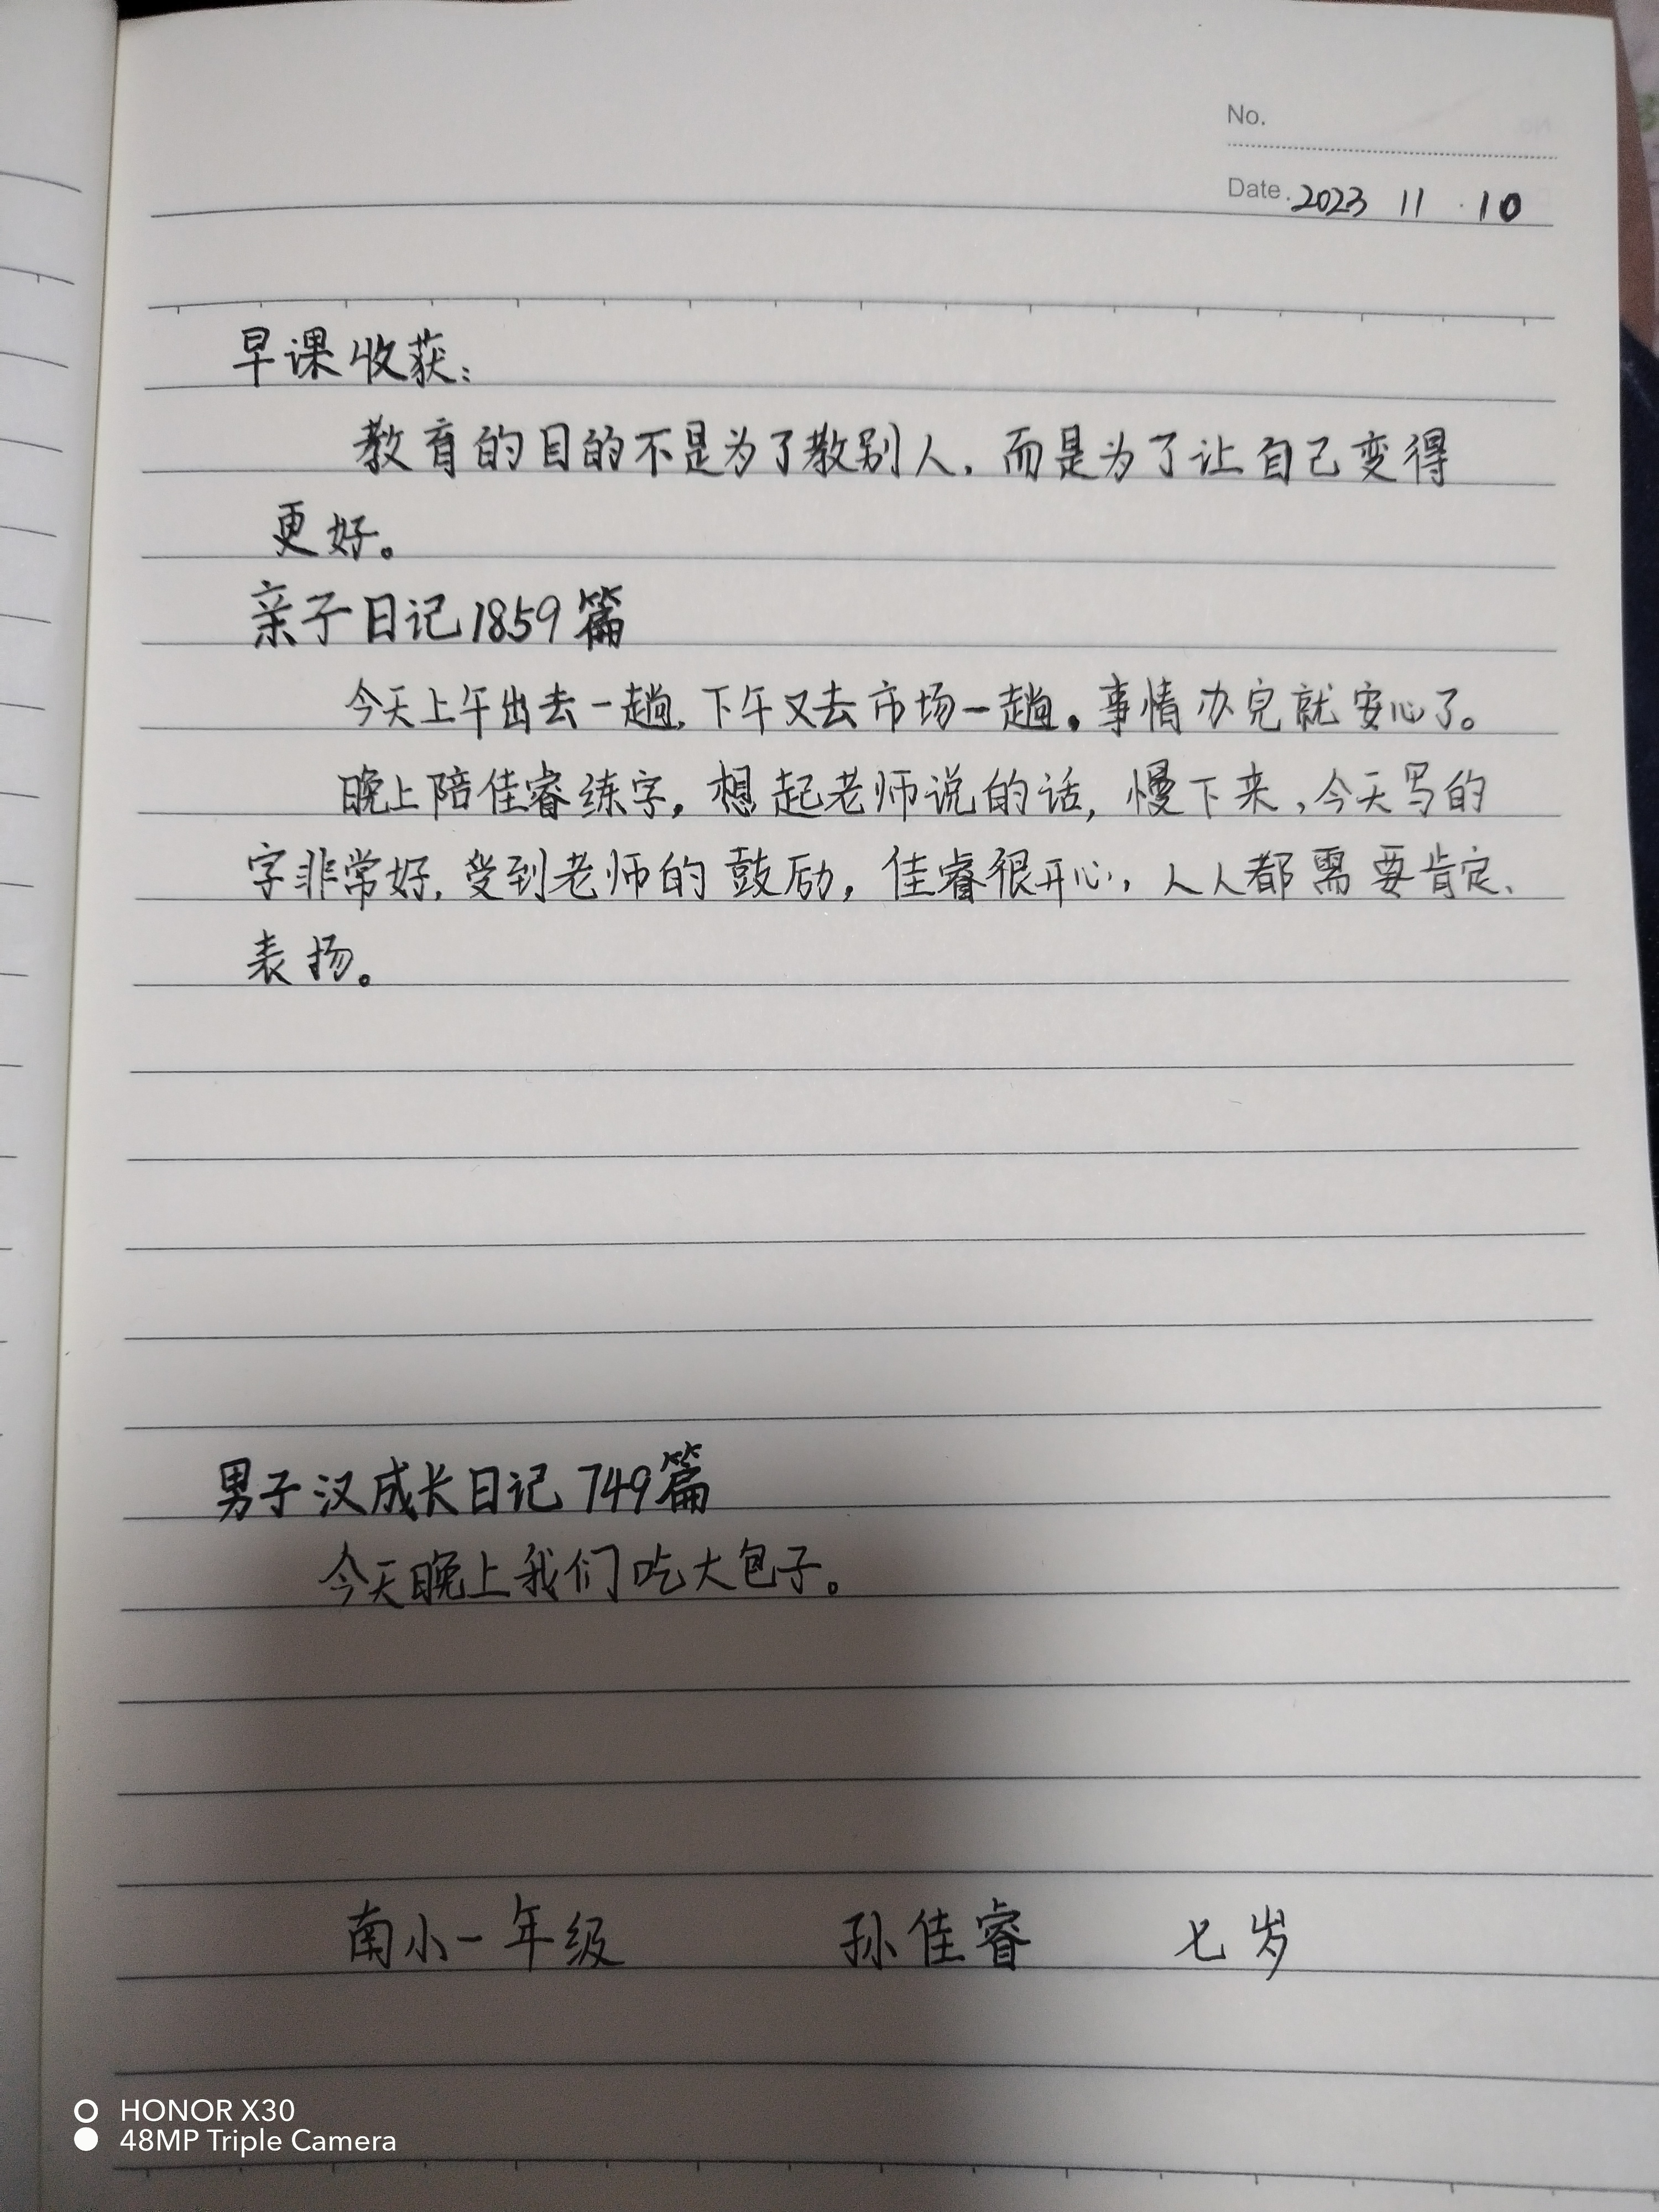 No.
Date. 2023 11 · 10
早课收获：
教育的目的不是为了教别人，而是为了让自己变得
更好。
亲子日记1859篇
今天上午出去一趟，下午又去市场一趟。事情办完就安心了。
晚上陪佳睿练字，想起老师说的话，慢下来，今天写的
字非常好，受到老师的鼓励，佳睿很开心，人人都需要肯定、
表扬。
男子汉成长日记 749篇
今天晚上我们吃大包子。
南小一年级 孙佳睿 七岁
HONOR X30
48MP Triple Camera